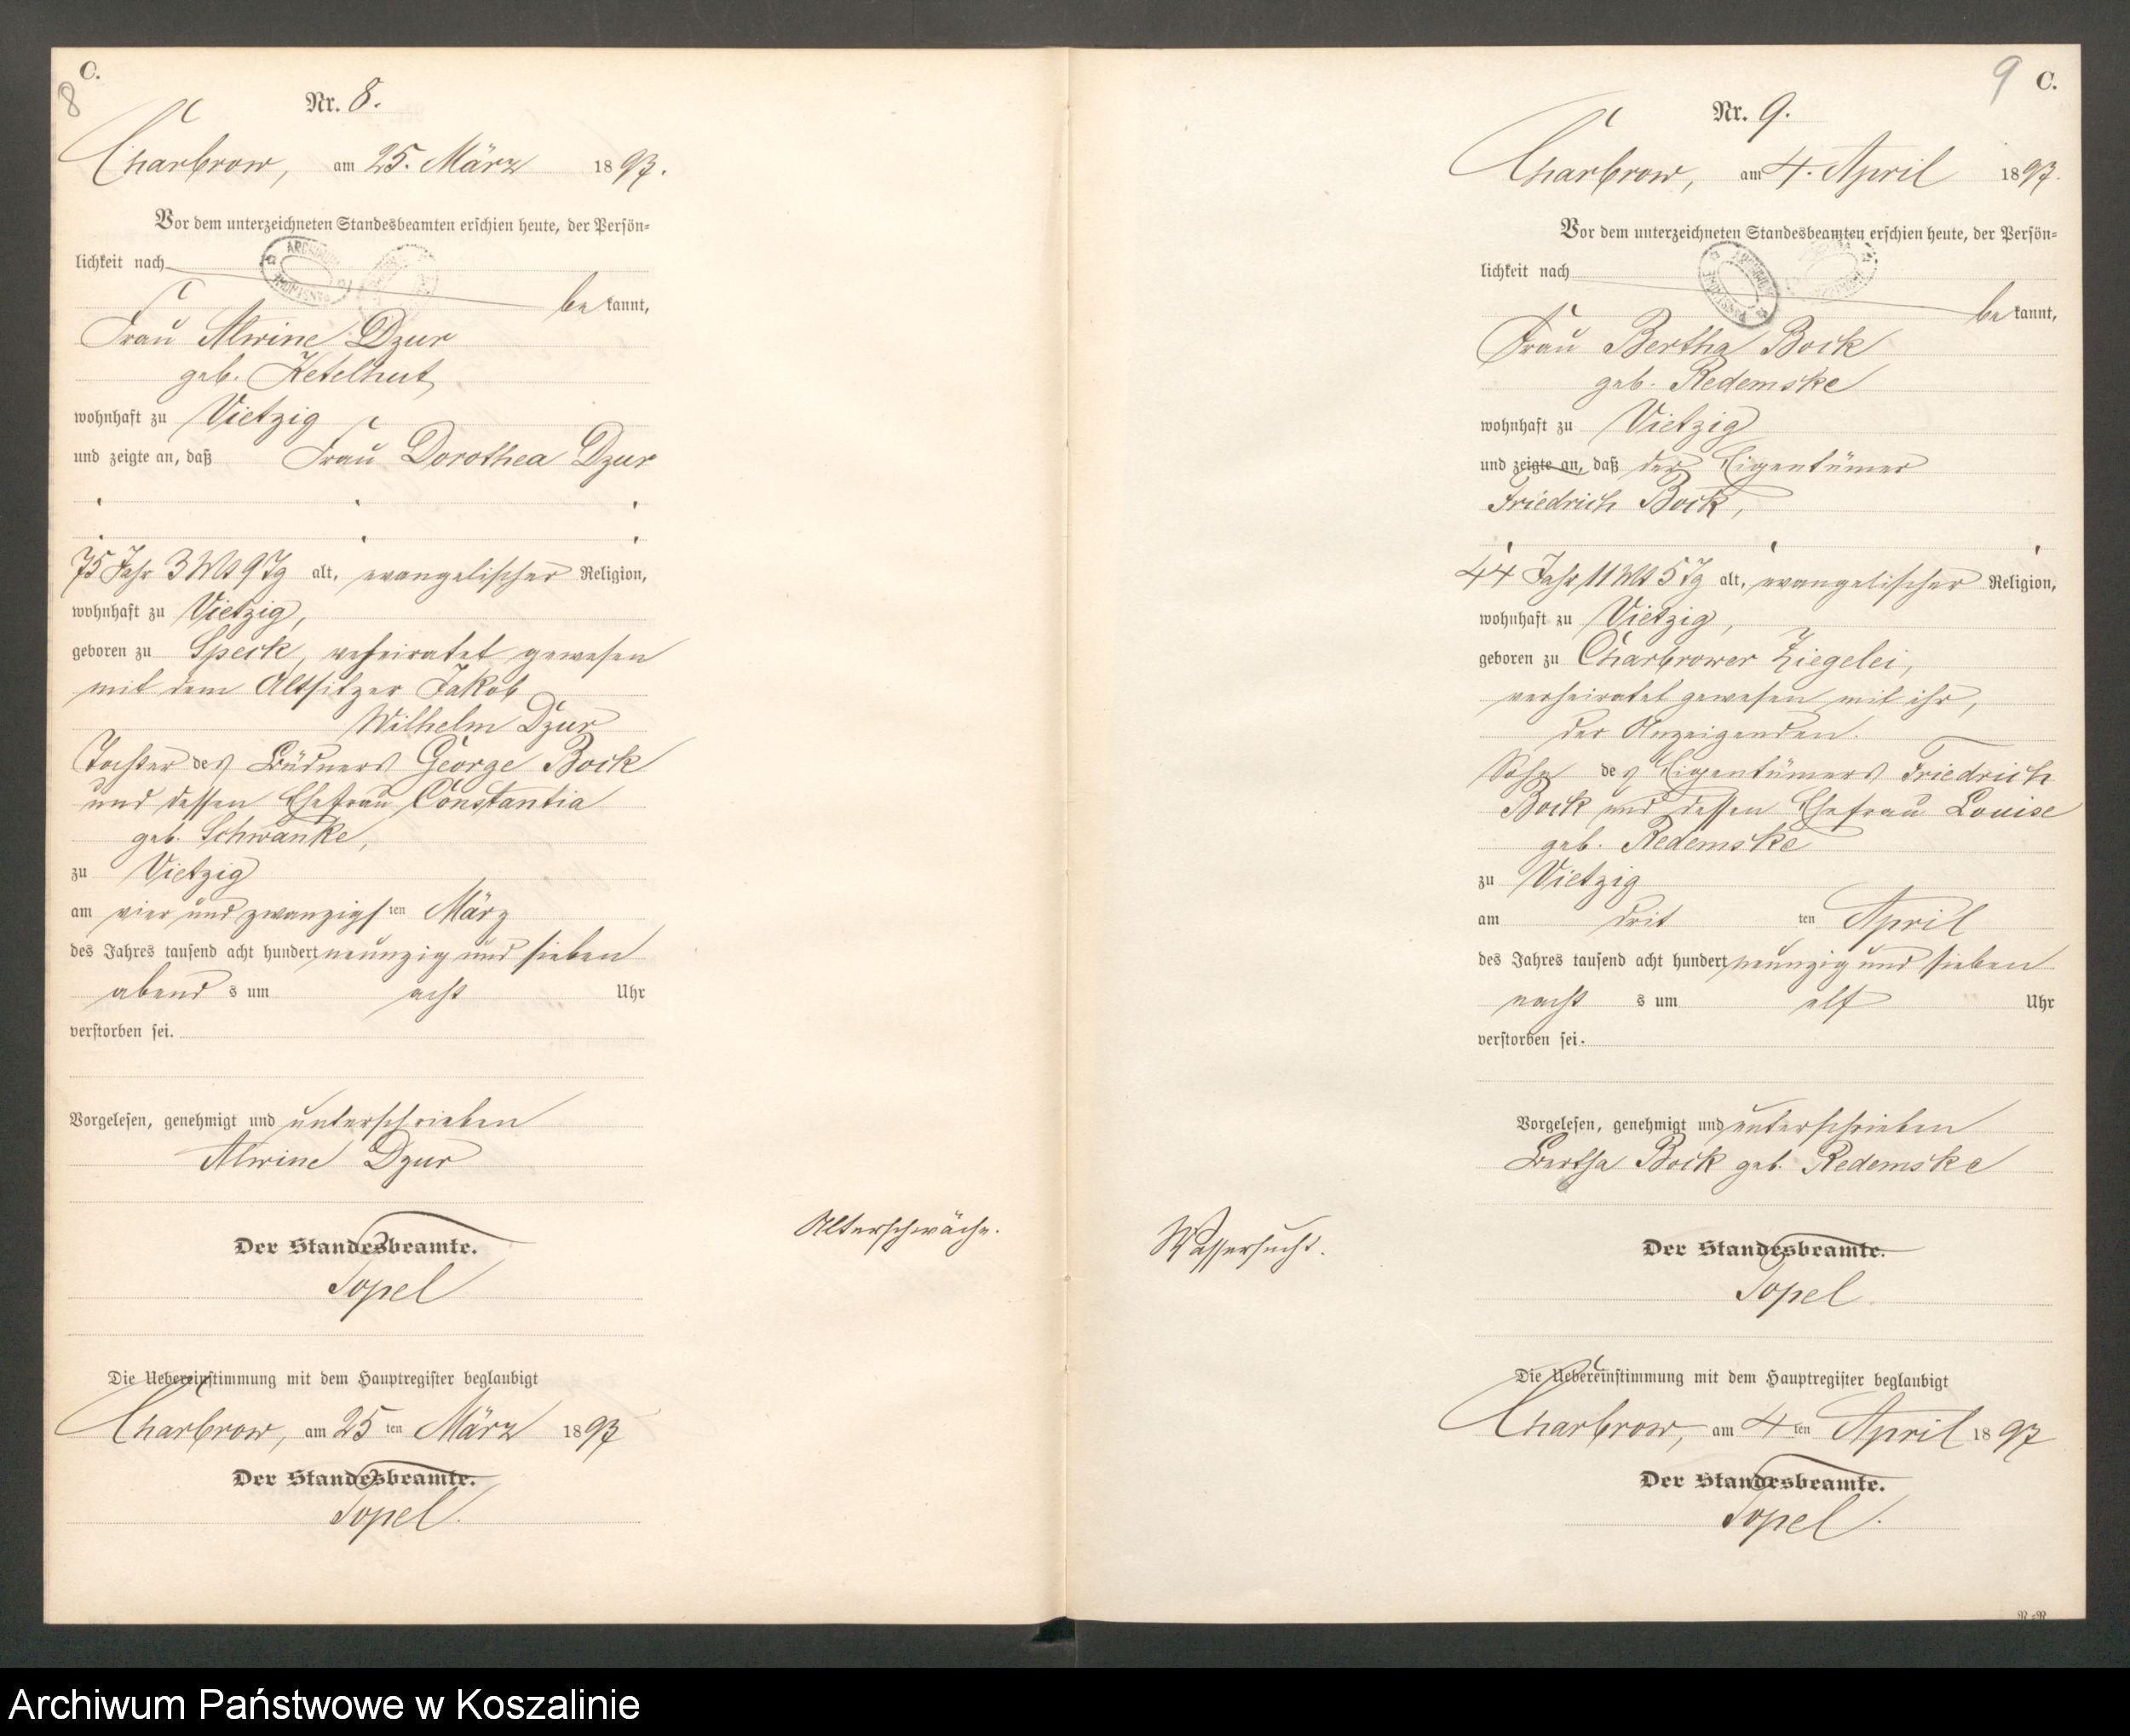 8
C.
Nr. 8.
Charbrow, am 25. März 1897.
Vor dem unterzeichneten Standesbeamten erschien heute, der Persön-
lichkeit nach
be kannt,
Frau Alwine Dzur
geb. Ketelhut,
wohnhaft zu Vietzig
und zeigte an, daß Frau Dorothea Dzur
75 Jahr 3 Mt 9 Tg alt, evangelischer Religion,
wohnhaft zu Vietzig,
geboren zu Speck, verheiratet gewesen
mit dem Altsitzer Jakob
Wilhelm Dzur
Tochter des Büdners George Bock
und dessen Ehefrau Constantia
geb. Schwanke,
zu Vietzig
am vier und zwanzigsten März
des Jahres tausend acht hundert neunzig und sieben
abend s um acht Uhr
verstorben sei.
Vorgelesen, genehmigt und unterschrieben
Alwine Dzur
Der Standesbeamte.
Topel
Die Uebereinstimmung mit dem Hauptregister beglaubigt
Charbrow, am 25 ten März 1897
Der Standesbeamte.
Topel.
Alterschwäche.
9 C.
Nr. 9.
Charbrow, am 4. April 1897.
Vor dem unterzeichneten Standesbeamten erschien heute, der Persön-
lichkeit nach
be kannt,
Frau Bertha Bock
geb. Redemske
wohnhaft zu Vietzig
und zeigte an, daß der Eigentümer
Friedrich Bock,
44 Jahr 11 Mt 5 Tg alt, evangelischer Religion,
wohnhaft zu Vietzig,
geboren zu Charbrower Ziegelei,
verheiratet gewesen mit ihr,
der Anzeigenden.
Sohn des Eigentümers Friedrich
Bock und dessen Ehefrau Louise
geb. Redemske
zu Vietzig
am drit ten April
des Jahres tausend acht hundert neunzig und sieben
nacht s um elf Uhr
verstorben sei.
Vorgelesen, genehmigt und unterschrieben
Bertha Bock geb. Redemske
Wassersucht.
Der Standesbeamte.
Topel
Die Uebereinstimmung mit dem Hauptregister beglaubigt
Charbrow, am 4 ten April 1897
Der Standesbeamte.
Topel.
Archiwum Państwowe w Koszalinie